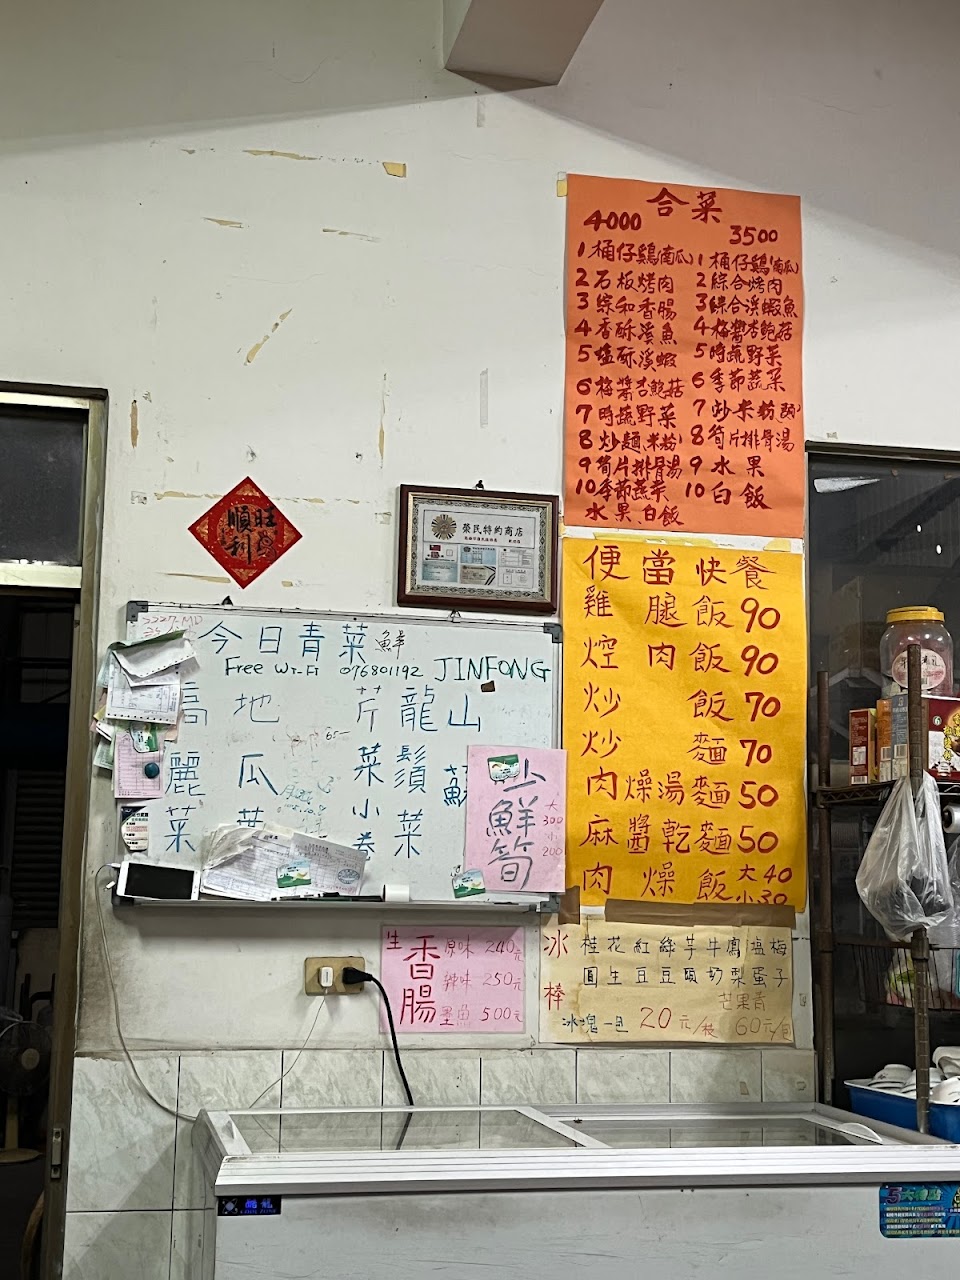 合菜
4000
1 桶仔鷄(南瓜)
2 石板烤肉
3 綜和香腸
4 香酥溪魚
5 塩酥溪蝦
6 梅醬杏鮑菇
7 時蔬野菜
8 炒麵(米粉)
9 筍片排骨湯
10 季節蔬菜
水果、白飯
3500
1 桶仔鷄(南瓜)
2 綜合烤肉
3 綜合溪蝦魚
4 梅醬杏鮑菇
5 時蔬野菜
6 季節蔬菜
7 炒米粉(麵)
8 筍片排骨湯
9 水果
10 白飯
旺
順利
榮民特約商店
便當快餐
雞腿飯 90
焢肉飯 90
炒飯 70
炒麵 70
肉燥湯麵 50
麻醬乾麵 50
肉燥飯 大40
小30
今日青菜 鮮
Free Wi-Fi 076801192 JINFONG
高麗菜
地瓜葉
65-
芹菜小卷
龍鬚菜
山蘇
鮮筍
大
300
小
200
生
香腸
原味 240元
辣味 250元
墨魚 500元
冰棒
桂花紅綠芋牛鳳塩梅
圓生豆豆頭奶梨蛋子
芒果青
冰塊一包 20元/枝 60元/包
5大特點